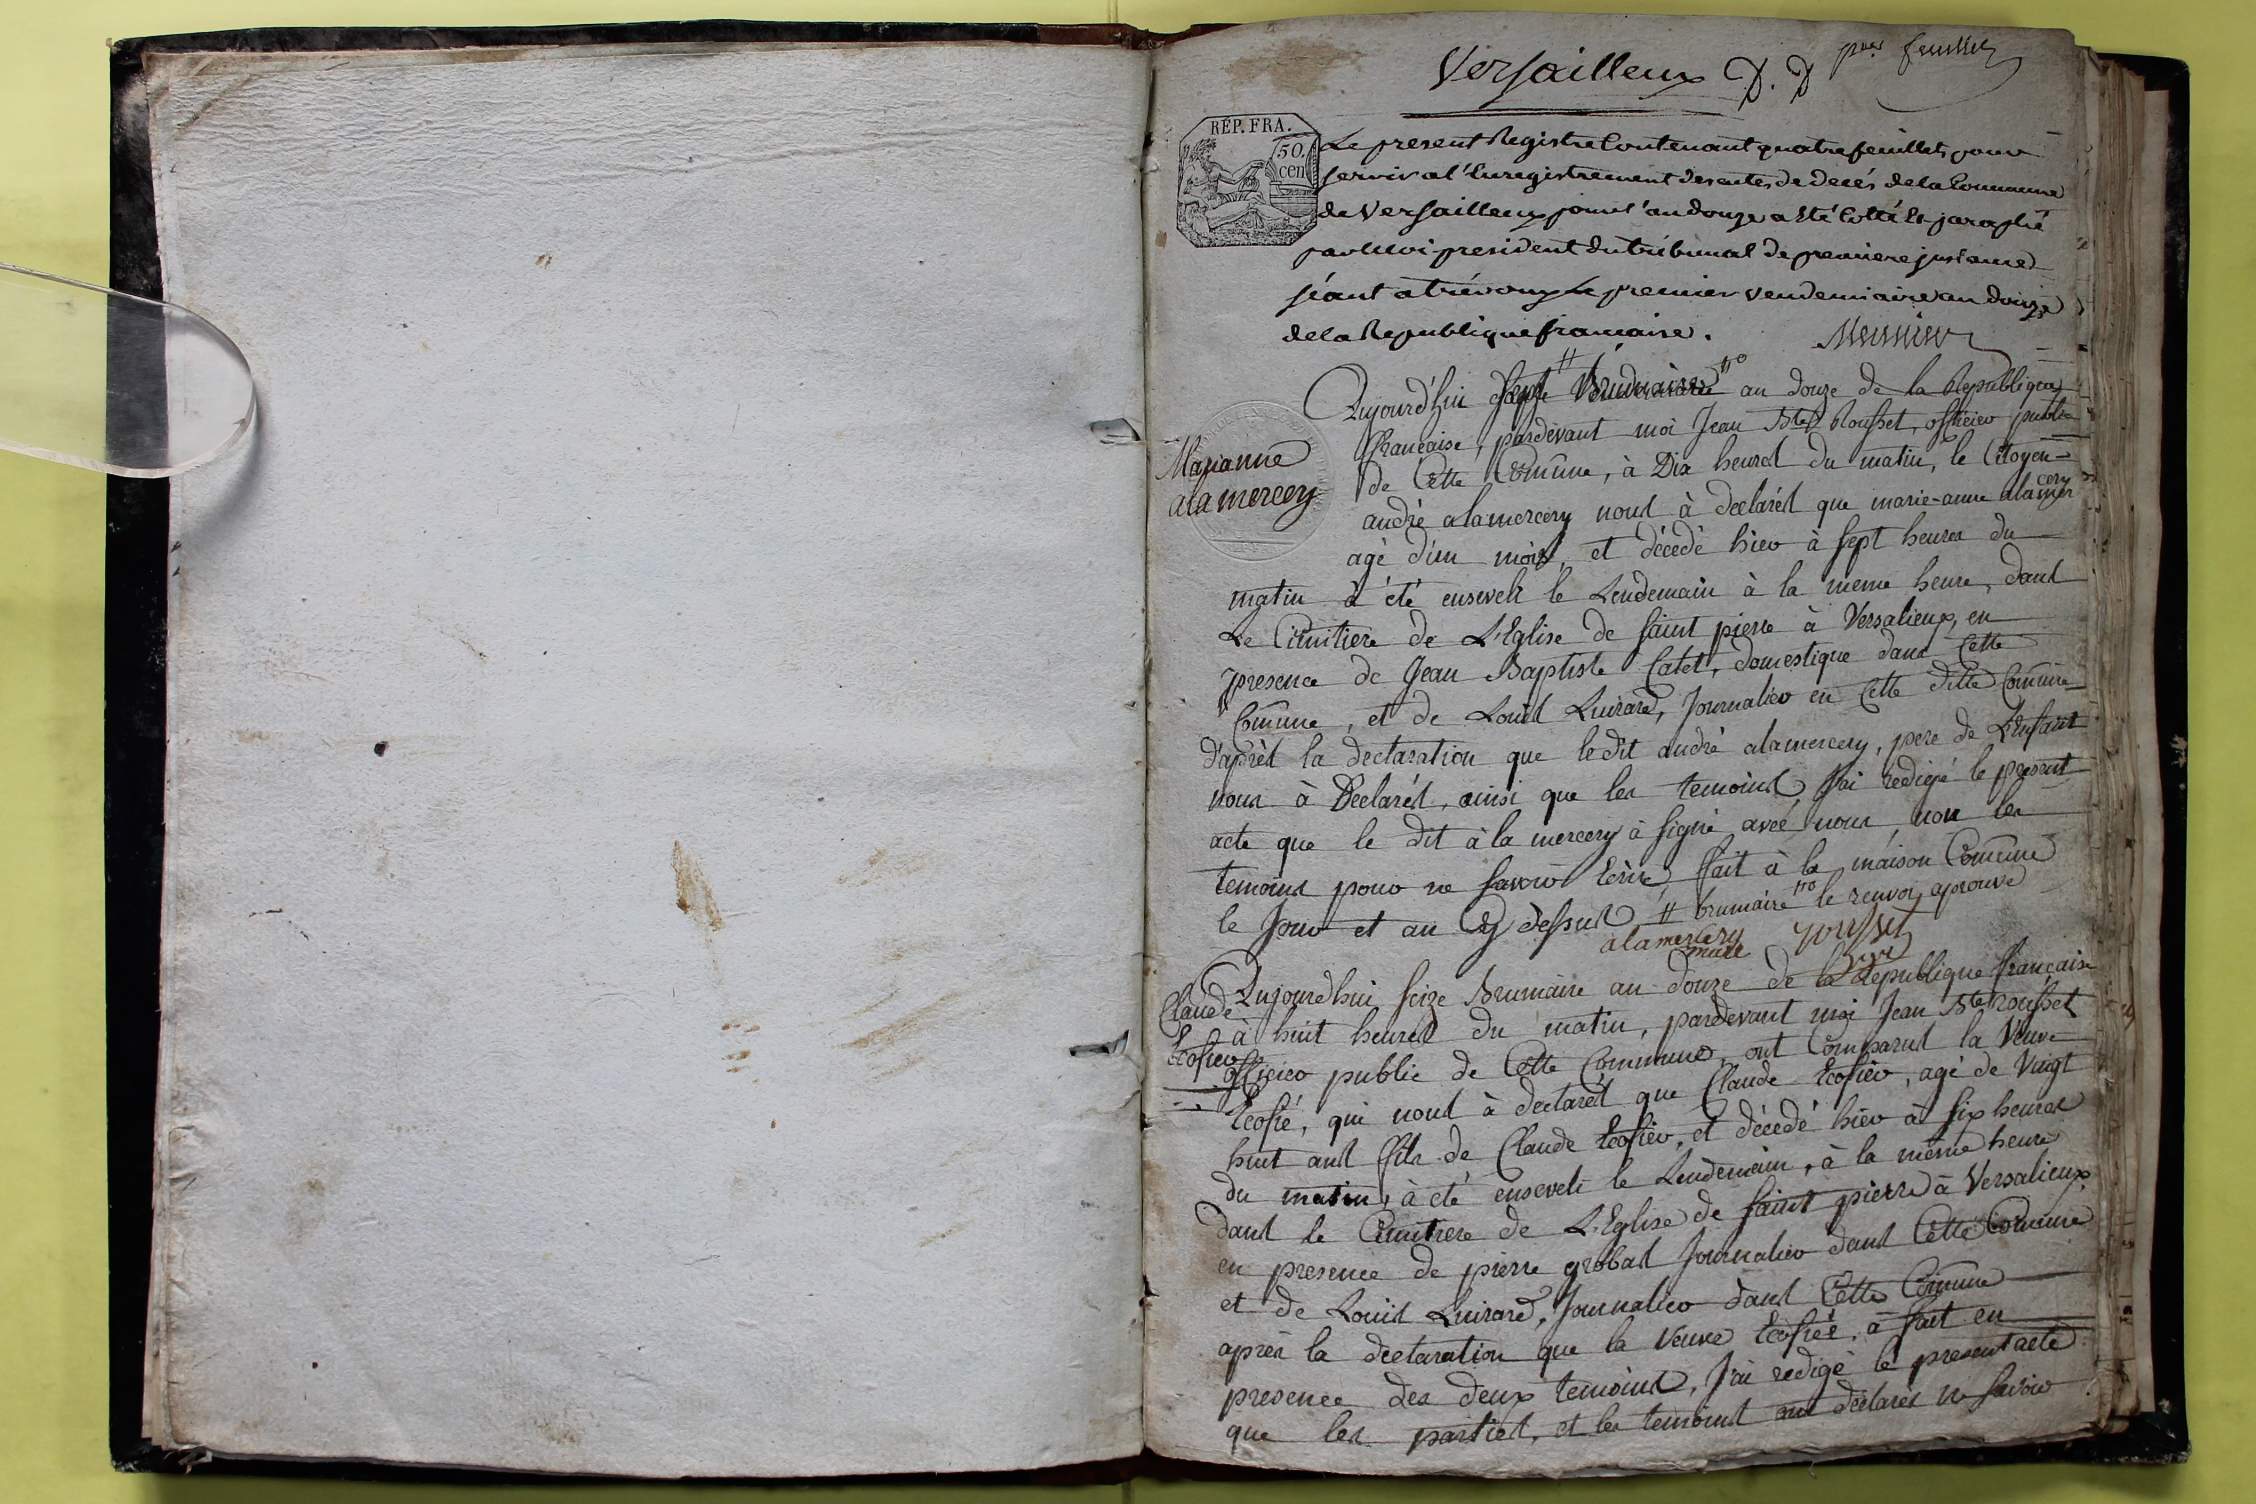 Versailleux D. D per feuillet
RÉP. FRA.
50.
cen
Le present Registre Contenant quatre feuillets pour
servir a l'Enregistrement des actes de decés de la Commune
de Versailleux pour l'an douze a eté Cotté Et paraphé
par Moi president du tribunal de premiere justance
séant a trévoux Le premier vendemiaire an douze
de la Republique francaise.
Messier
Marianne
alamercery
Aujourd'hui Sept # Vendemiaire no an douze de la Republique
ffrancaise, pardevant moi Jean Bte Rousset, officier public
de Cette Comune, à Dix heures du matin, le Citoyen
andré alamercery nous à declarés que marie-anne alamercery
agé d'un mois, et décédé hier à sept heures du
matin à été enseveli le Lendemain à la meme heure, dans
Le Cimitiere de L'Eglise de saint pierre à Versalieux, en
presence de Jean Baptiste Catet, domestique dans Cette
Comune, et de Louis Luirard, Journalier en Cette ditte Comune
d'après la declaration que ledit andré alamercery, pere de L'enfant
nous à Declarés, ainsi que les temoins, J'ai redigé le present
acte que le dit à la mercery à signé avec nous, non les
temoins pour ne savoir Ecrire, ffait à la maison Comune
le Jour et an Cy dessus, # brumaire no le renvoi aprouvé
alamercery rousset
maire
Claude
Ecosier
Aujourdhui seize Brumaire an douze de la Republique ffrancaise
à huit heures du matin, pardevant moi Jean Bte rousset
officier public de Cette Commune, ont Comparus la Veuve
Ecosié, qui nous à declarés que Claude Ecosier, agé de Vingt
huit ans ffils de Claude Ecosier, et décédé hier à six heures
du matin, à eté enseveli le Lendemain, à la même heure
dans le Cimitiere de L'Eglise de saint pierre à Versalieux
en presence de pierre grobas Journalier dans Cette Comune
et de Louis Luirard, Journalier dans Cette Comune
après la declaration que la Veuve Ecosiée, à fait en
presence des deux temoins, J'ai redigé le present acte
que les parties, et les temoins ont declarés ne savoir